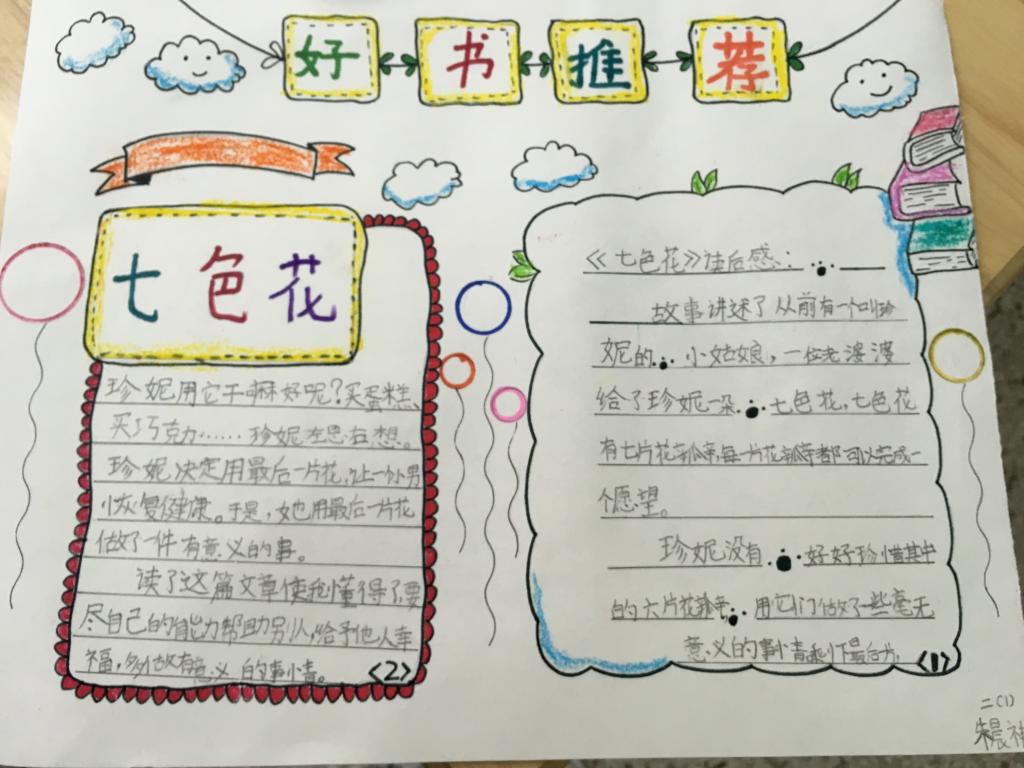 好书推荐
七色花
《七色花》读后感:
故事讲述了从前有一个叫珍
妮的 小姑娘,一位老婆婆
给了珍妮一朵 七色花,七色花
有七片花瓣,每一片花瓣都可以完成一
个愿望。
珍妮没有 好好珍惜其中
的六片花瓣 用它们做了一些毫无
意义的事情剩下最后片,
<1>
珍妮用它干嘛好呢?买蛋糕、
买巧克力……珍妮左思右想。
珍妮决定用最后一片花,让一个小男
恢复健康。于是,她用最后一片花
做了一件有意义的事。
读了这篇文章使我懂得了,要
尽自己的能力帮助别人,给予他人幸
福,多做有意义的事情。
<2>
二(1)
朱晨